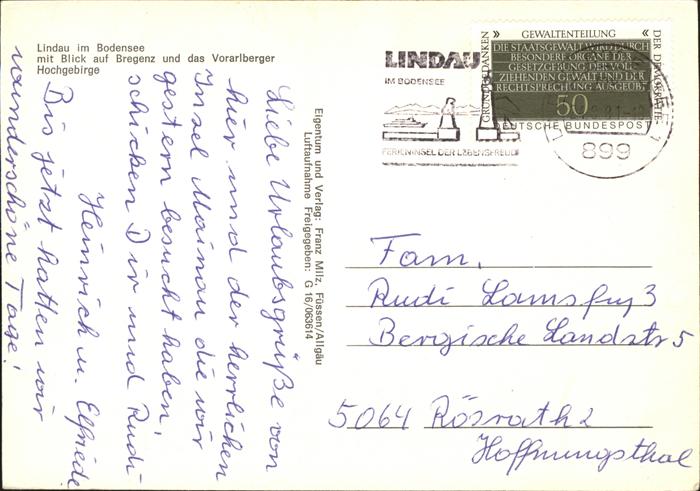 Lindau im Bodensee
mit Blick auf Bregenz und das Vorarlberger
Hochgebirge
Liebe Urlaubsgrüße von
hier und der herrlichen
Insel Mainau die wir
gestern besucht haben,
schicken Dir und Rudi
Heinrich u. Elfriede
Bis jetzt hatten wir
wunderschöne Tage!
Eigentum und Verlag: Franz Milz, Füssen/Allgäu
Luftaufnahme Freigegeben: G 16/063614
LINDAU
IM BODENSEE
FERIENINSEL DER LEBENSFREUDE
899
GRUNDGEDANKEN
» GEWALTENTEILUNG «
DER DEMOKRATIE
DIE STAATSGEWALT WIRD DURCH
BESONDERE ORGANE DER
GESETZGEBUNG, DER VOLL-
ZIEHENDEN GEWALT UND DER
RECHTSPRECHUNG AUSGEÜBT
50
DEUTSCHE BUNDESPOST
Fam.
Rudi
Bergische Landstr 5
5064 Rösrath 2
Hoffnungsthal